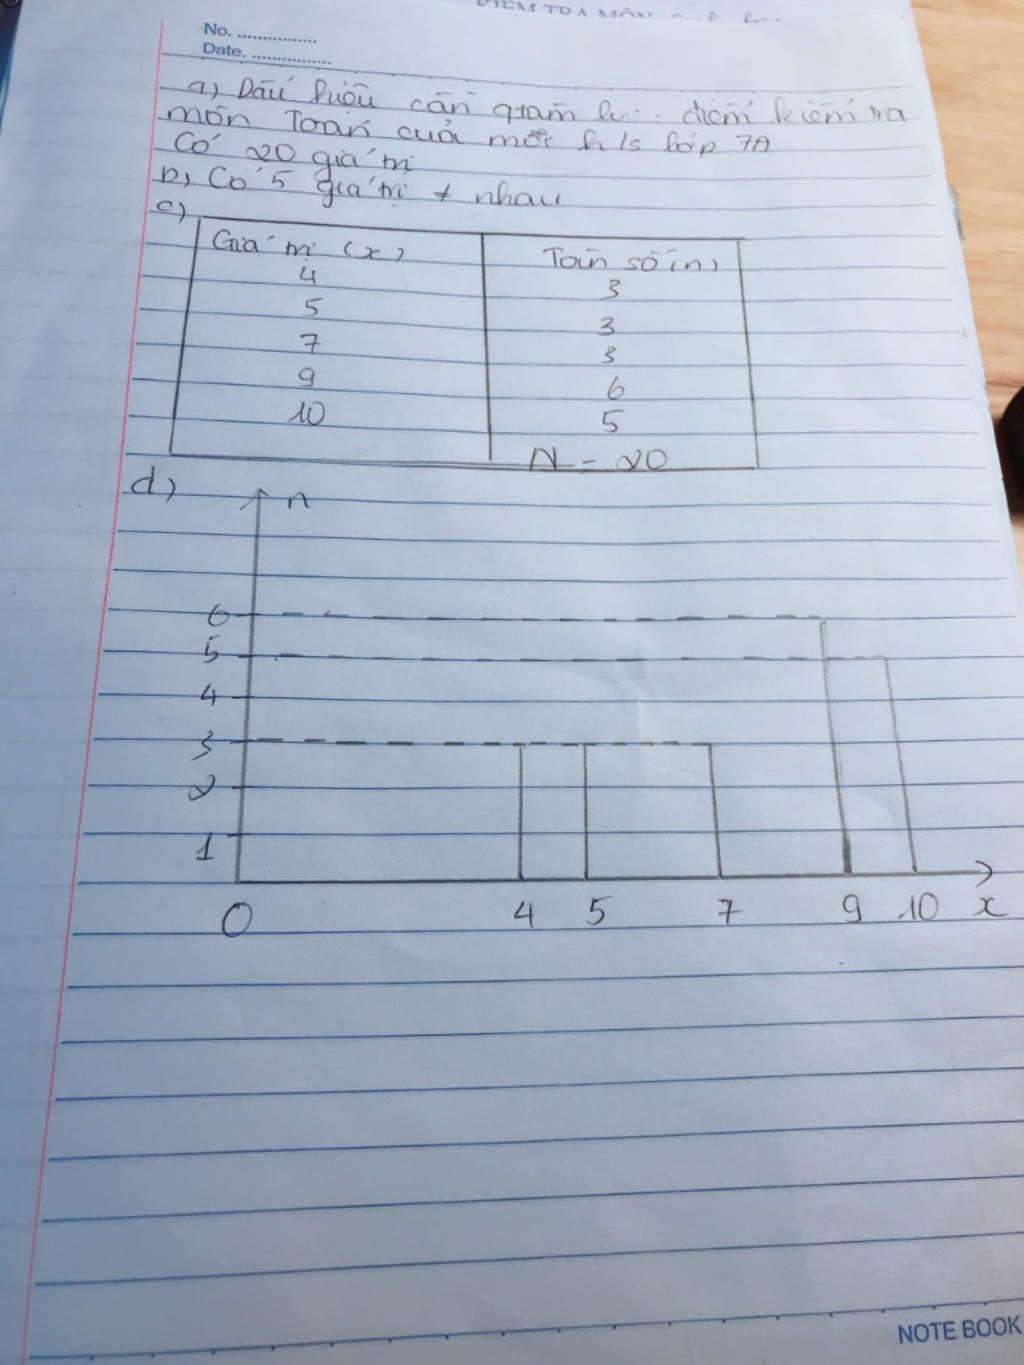 No.
Date.
a) Dấu hiệu cần quan : điểm kiểm tra
môn Toán của mỗi h/s lớp 7A
Có 20 giá trị
b) Có 5 giá trị ≠ nhau
c)
Giá trị (x) Tần số (n)
4 3
5 3
7 3
9 6
10 5
N = 20
d)
n
6
5
4
3
2
1
0 4 5 7 9 10 x
NOTE BOOK